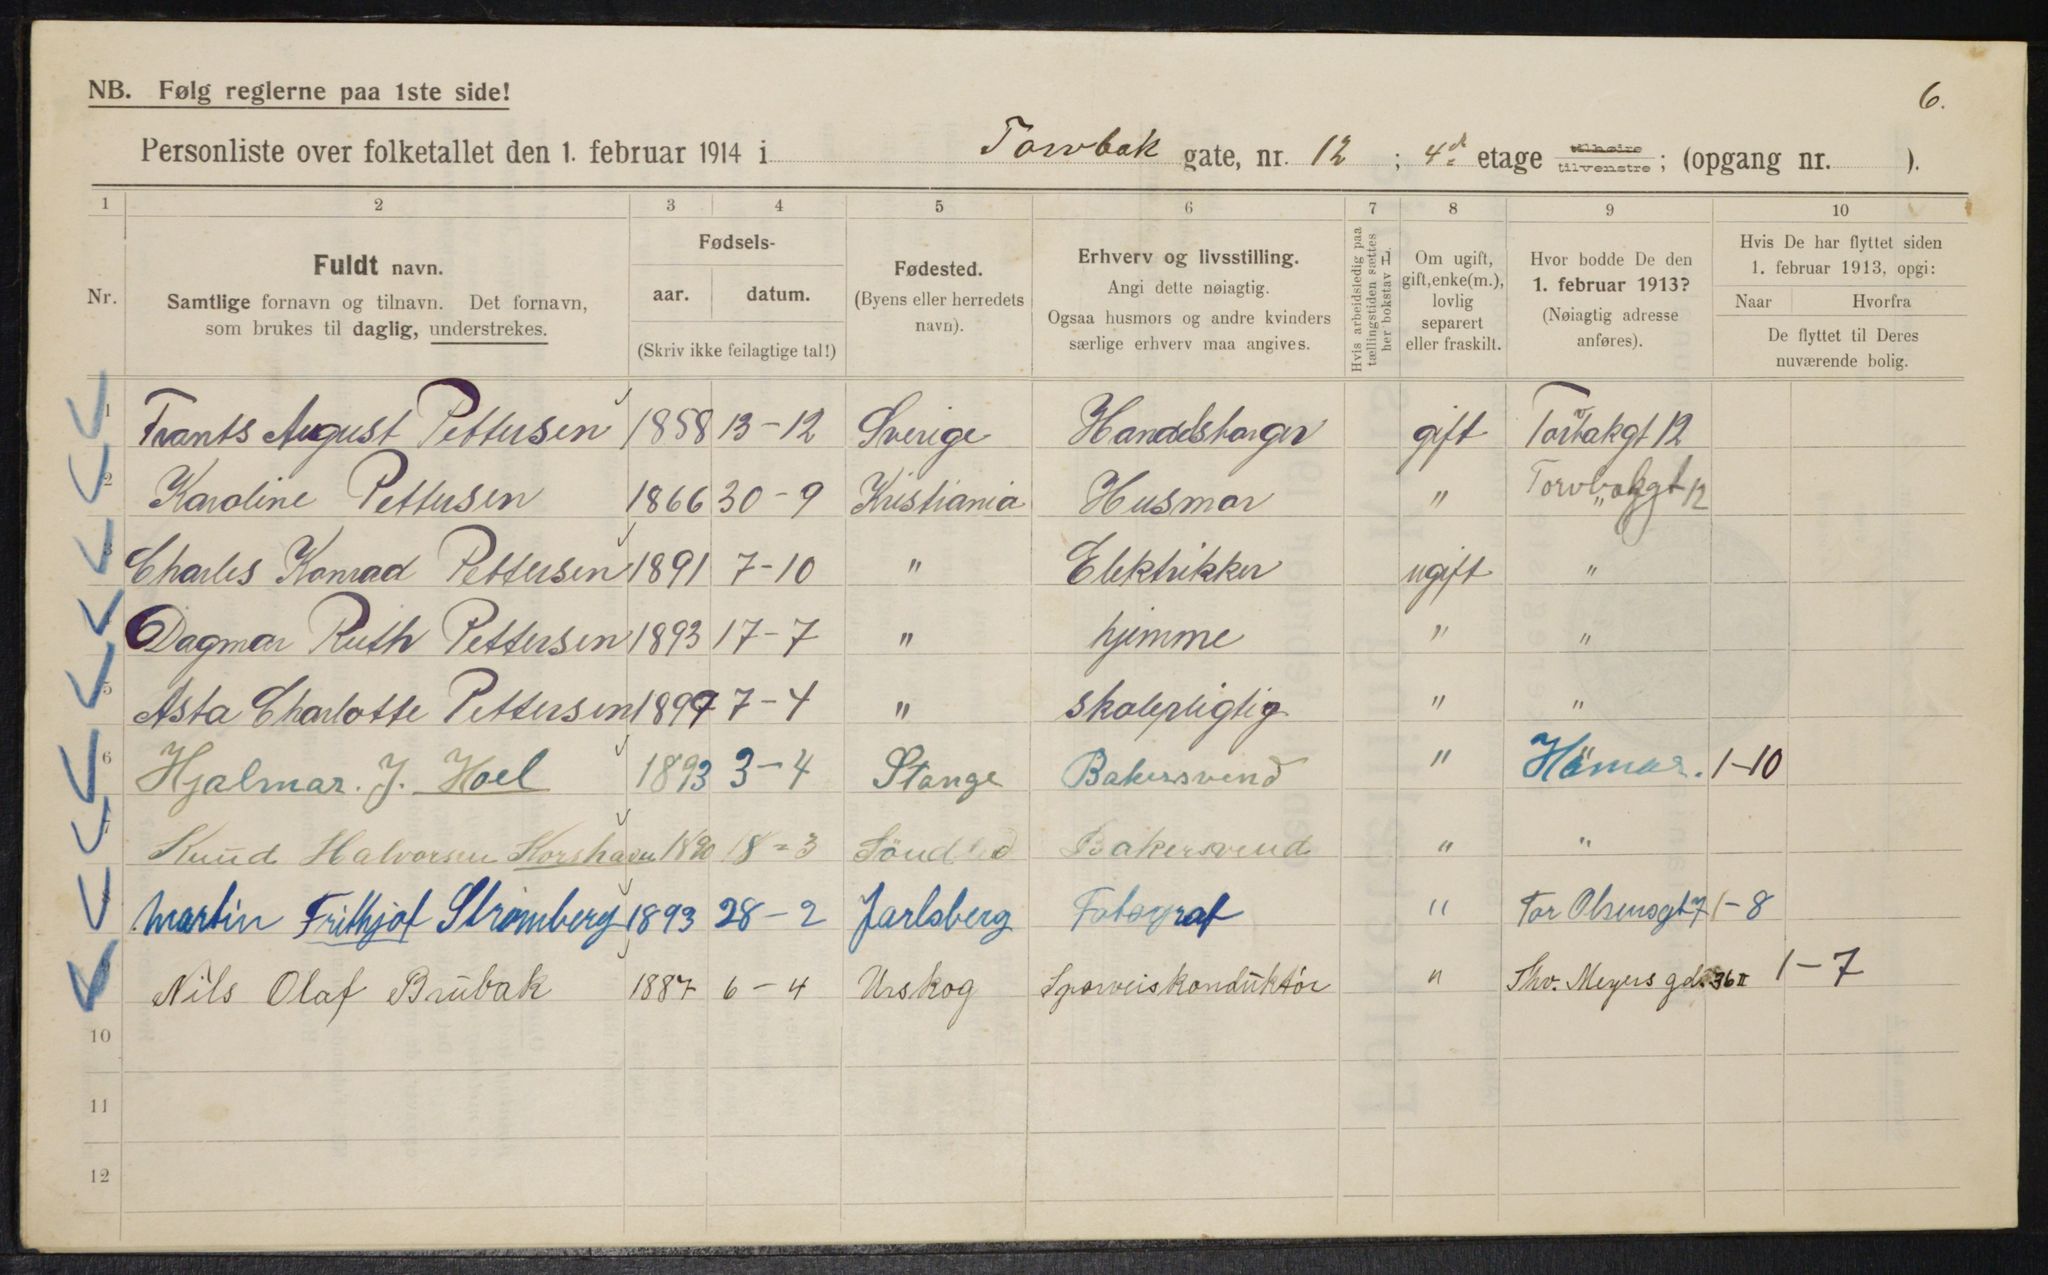 NB. Følg reglerne paa 1ste side!
6.
Personliste over folketallet den 1. februar 1914 i Torvbak gate, nr. 12 ; 4d. etage tilhøire tilvenstre ; (opgang nr. ).
1 2 3 4 5 6 7 8 9 10
Nr.
Fuldt navn.
Samtlige fornavn og tilnavn. Det fornavn,
som brukes til daglig, understrekes.
Fødsels-
aar. datum.
(Skriv ikke feilagtige tal!)
Fødested.
(Byens eller herredets
navn).
Erhverv og livsstilling.
Angi dette nøiagtig.
Ogsaa husmors og andre kvinders
særlige erhverv maa angives.
Hvis arbeidsledig paa
tællingstiden sættes
her bokstav L.
Om ugift,
gift, enke(m.),
lovlig
separert
eller fraskilt.
Hvor bodde De den
1. februar 1913?
(Nøiagtig adresse
anføres).
Hvis De har flyttet siden
1. februar 1913, opgi:
Naar Hvorfra
De flyttet til Deres
nuværende bolig.
1 Frants August Pettersen 1858 13-12 Sverige Handelsborger gift Torbakgt 12
2 Karoline Pettersen 1866 30-9 Kristiania Husmor " Torvbakgt 12
3 Charles Konrad Pettersen 1891 7-10 " Elektrikker ugift "
Dagmar Ruth Pettersen 1893 17-7 " hjemme " "
5 Asta Charlotte Pettersen 1899 7-4 " skolepligtig " "
6 Hjalmar. J. Hoel 1893 3-4 Stange Bakersvend " Hamar. 1-10
7 Knud Halvorsen Korshavn 1890 18=3 Söndled Bakersvend " "
8 Martin Frithjof Strømberg 1893 28-2 Jarlsberg Fotograf " Tor Olsensgt 7 1-8
9 Nils Olaf Brubak 1887 6-4 Urskog Sporveiskonduktör " Thv. Meyers gd. 36 II 1-7
10
11
12